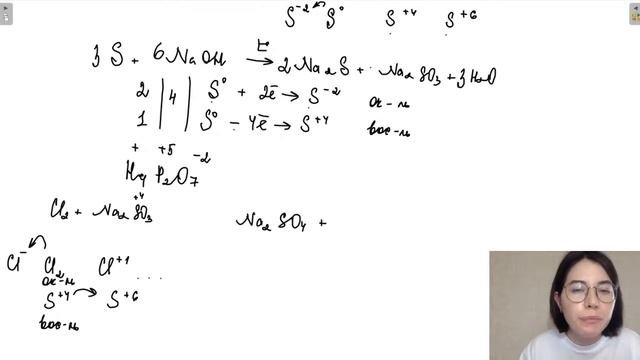 S⁻² S⁰ S⁺⁴ S⁺⁶
3S + 6NaOH t° → 2Na₂S + Na₂SO₃ + 3H₂O
2 | 4 | S⁰ + 2ē → S⁻² ок-ль
1 | | S⁰ - 4ē → S⁺⁴ вос-ль
+ +5 -2
H₄P₂O₇
Cl₂ + Na₂S⁺⁴O₃ Na₂SO₄ +
Cl⁻ Cl₂ Cl⁺¹ ...
ок-ль
S⁺⁴ → S⁺⁶
вос-ль